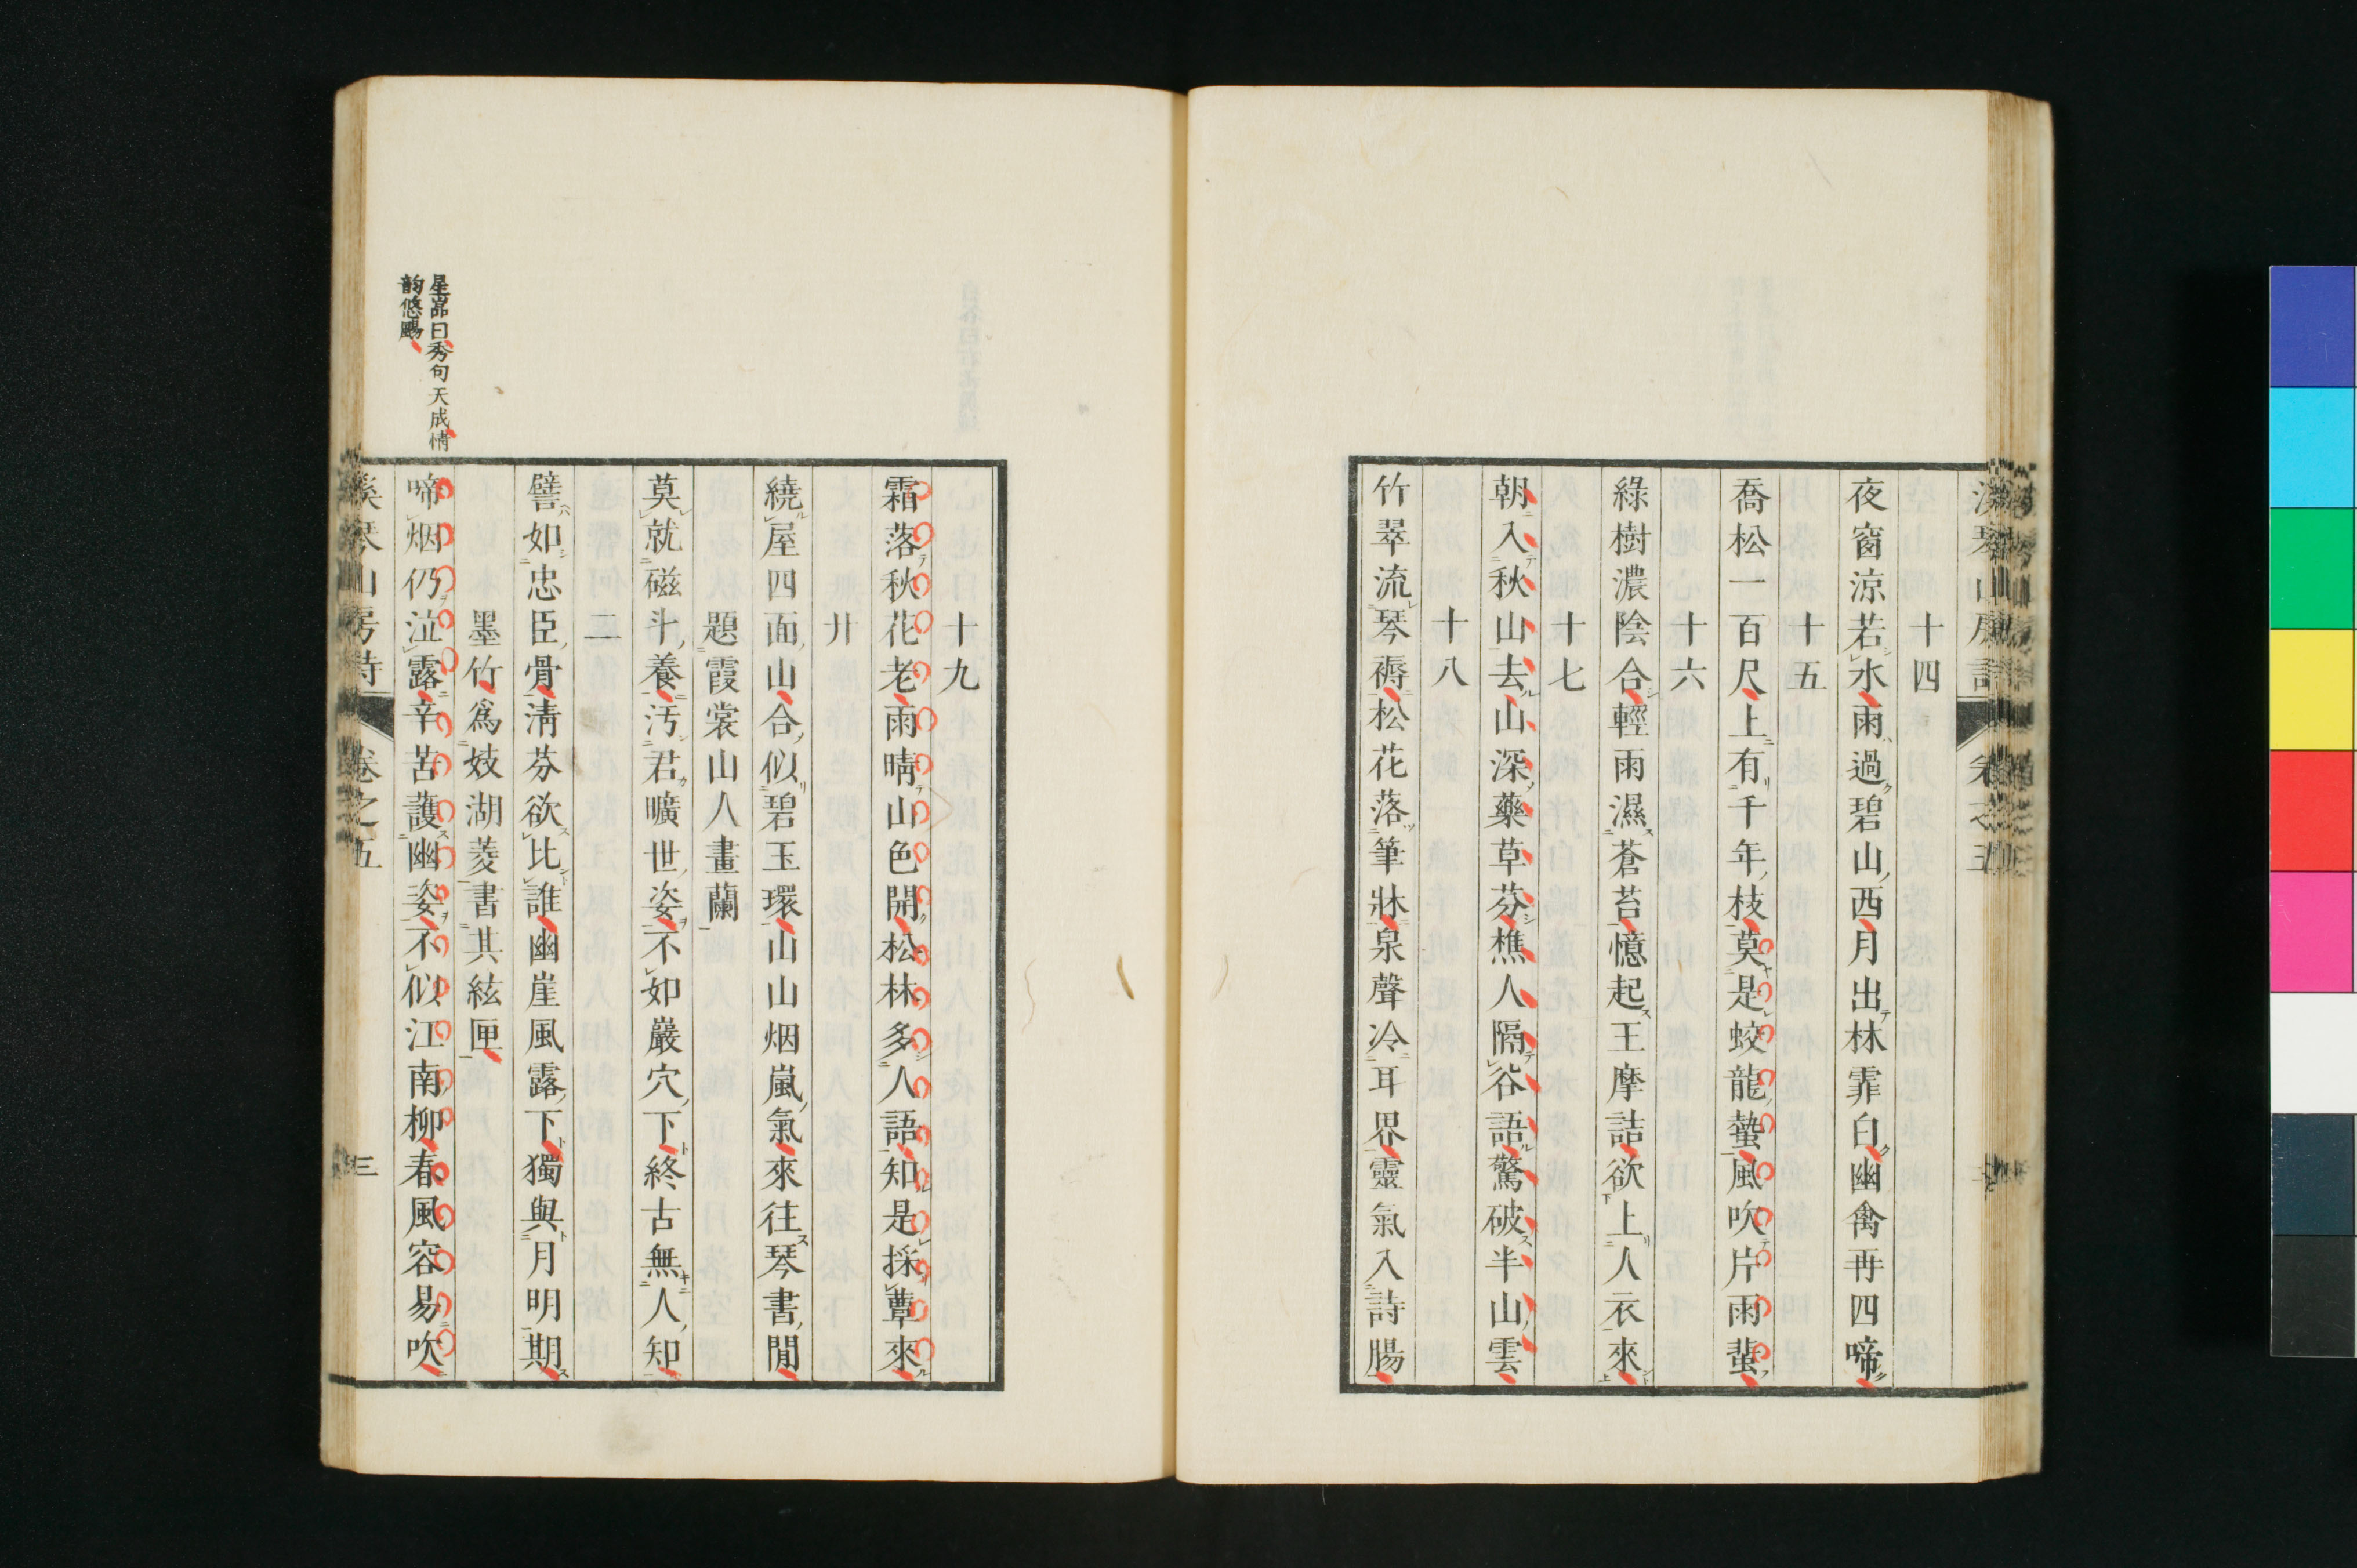 十四
夜窗涼若水雨過碧山西月出林霏白幽禽再四啼
十五
喬松一百尺上有千年枝莫是蛟龍蟄風吹片雨蜚
十六
綠樹濃陰合輕雨濕蒼苔憶起王摩詰欲上人衣來
十七
朝入秋山去山深藥草芬樵人隔谷語驚破半山雲
十八
竹翠流琴褥松花落筆牀泉聲冷耳界靈氣入詩腸
十九
霜落秋花老雨晴山色開松林多人語知是採蕈來
廾
繞屋四面山合似碧玉環山山烟嵐氣來往琴書閒
題霞裳山人畫蘭
莫就磁斗養汚君曠世姿不如巖穴下終古無人知
二
譬如忠臣骨清芬欲比誰幽崖風露下獨與月明期
墨竹爲妓湖菱書其絃匣
啼烟仍泣露辛苦護幽姿不似江南柳春風容易吹
星巖曰秀句天成情
韵悠颺
溪琴山房詩 卷之五 三